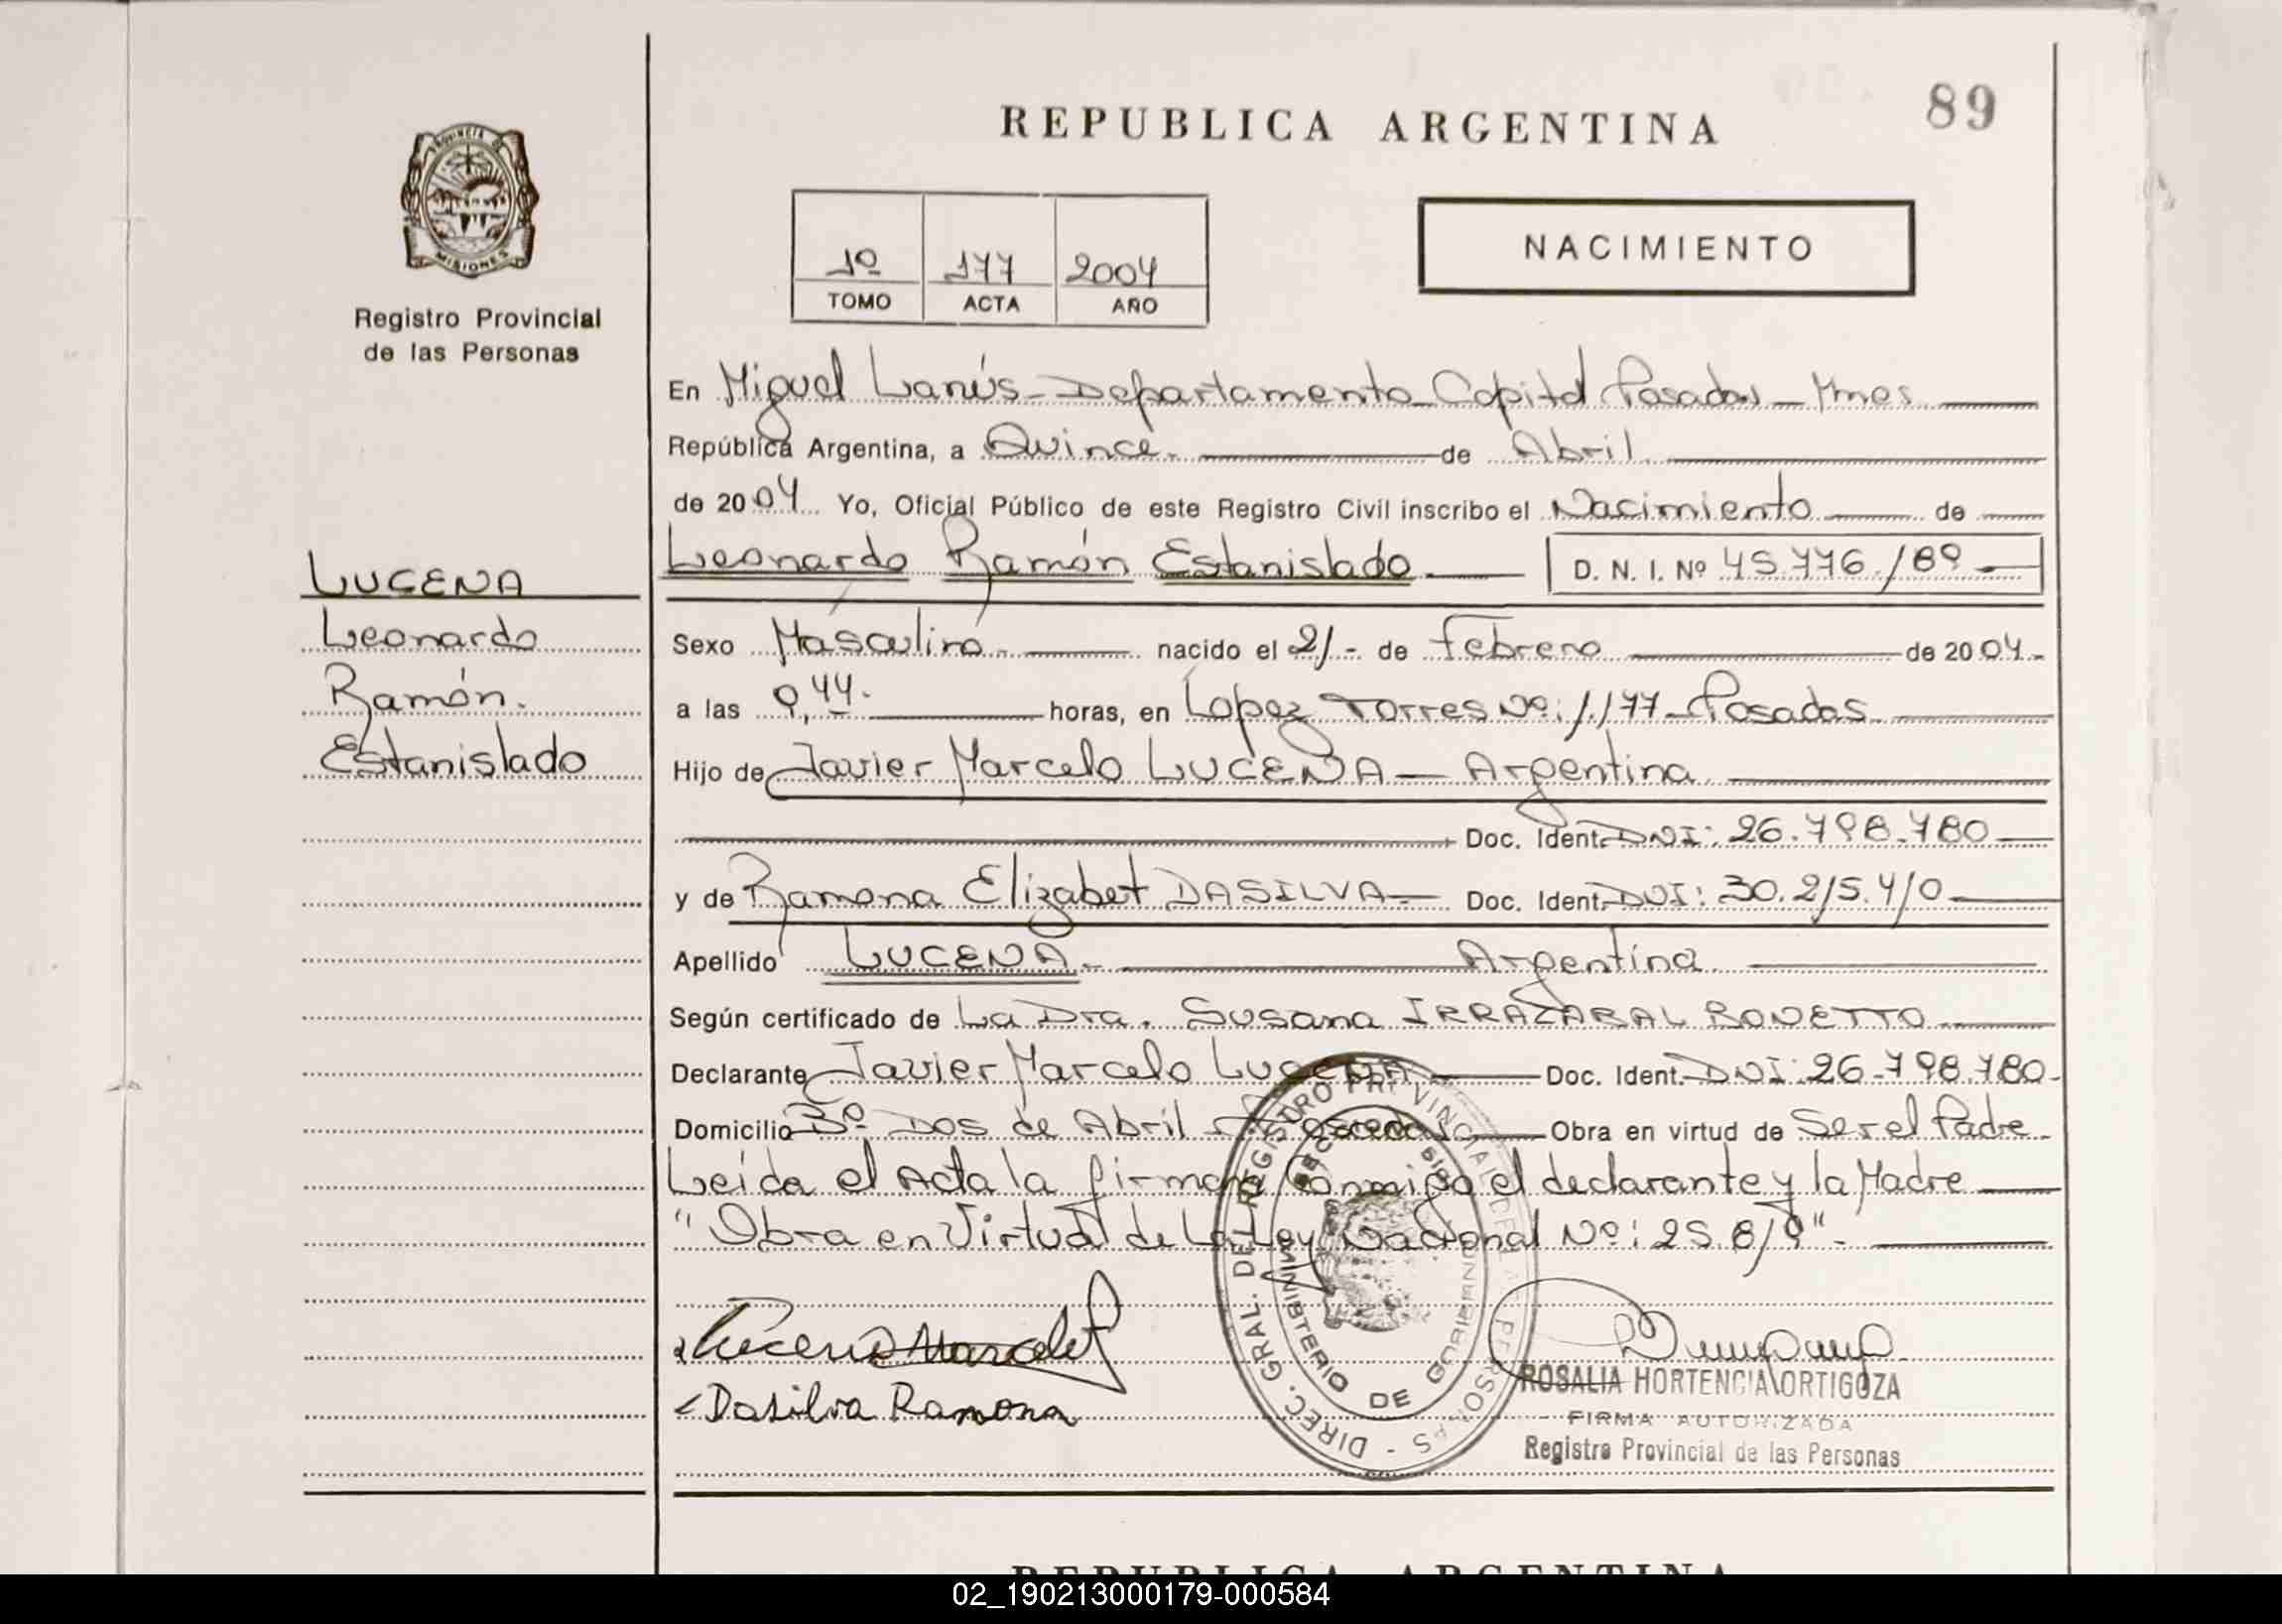 REPUBLICA ARGENTINA
89
PROVINCIA DE
MISIONES
Registro Provincial
de las Personas
1º 177 2004
TOMO ACTA AÑO
NACIMIENTO
En Miguel Lanús - Departamento Capital Posadas - Mnes
República Argentina, a Quince. de Abril
de 2004 Yo, Oficial Público de este Registro Civil inscribo el Nacimiento de
Leonardo Ramón Estanislado D. N. I. Nº 45.776.189
LUCENA
Leonardo
Ramón.
Estanislado
Sexo Masculino. nacido el 21- de Febrero de 2004.
a las 9,44. horas, en Lopez Torres Nº: 1.177 - Posadas
Hijo de Javier Marcelo LUCENA - Argentina
Doc. Ident. DNI: 26.798.780
y de Ramona Elizabet DASILVA - Doc. Ident. DNI: 30.215.410
Apellido LUCENA. Argentina
Según certificado de La Dra. Susana IRRAZABAL BONETTO
Declarante Javier Marcelo LUCENA Doc. Ident. DNI: 26.798.780-
Domicilio Bº Dos de Abril - Posadas Obra en virtud de Ser el Padre
Leída el Acta la firman conmigo el declarante y la Madre
"Obra en Virtud de La Ley Nacional Nº: 25.819".
Lucena Marcelo
Dasilva Ramona
DIREC. GRAL. DEL REGISTRO PROVINCIAL DE LAS PERSONAS
MINISTERIO DE GOBIERNO
ROSALIA HORTENCIA ORTIGOZA
FIRMA AUTORIZADA
Registro Provincial de las Personas
REPUBLICA ARGENTINA
02_190213000179-000584